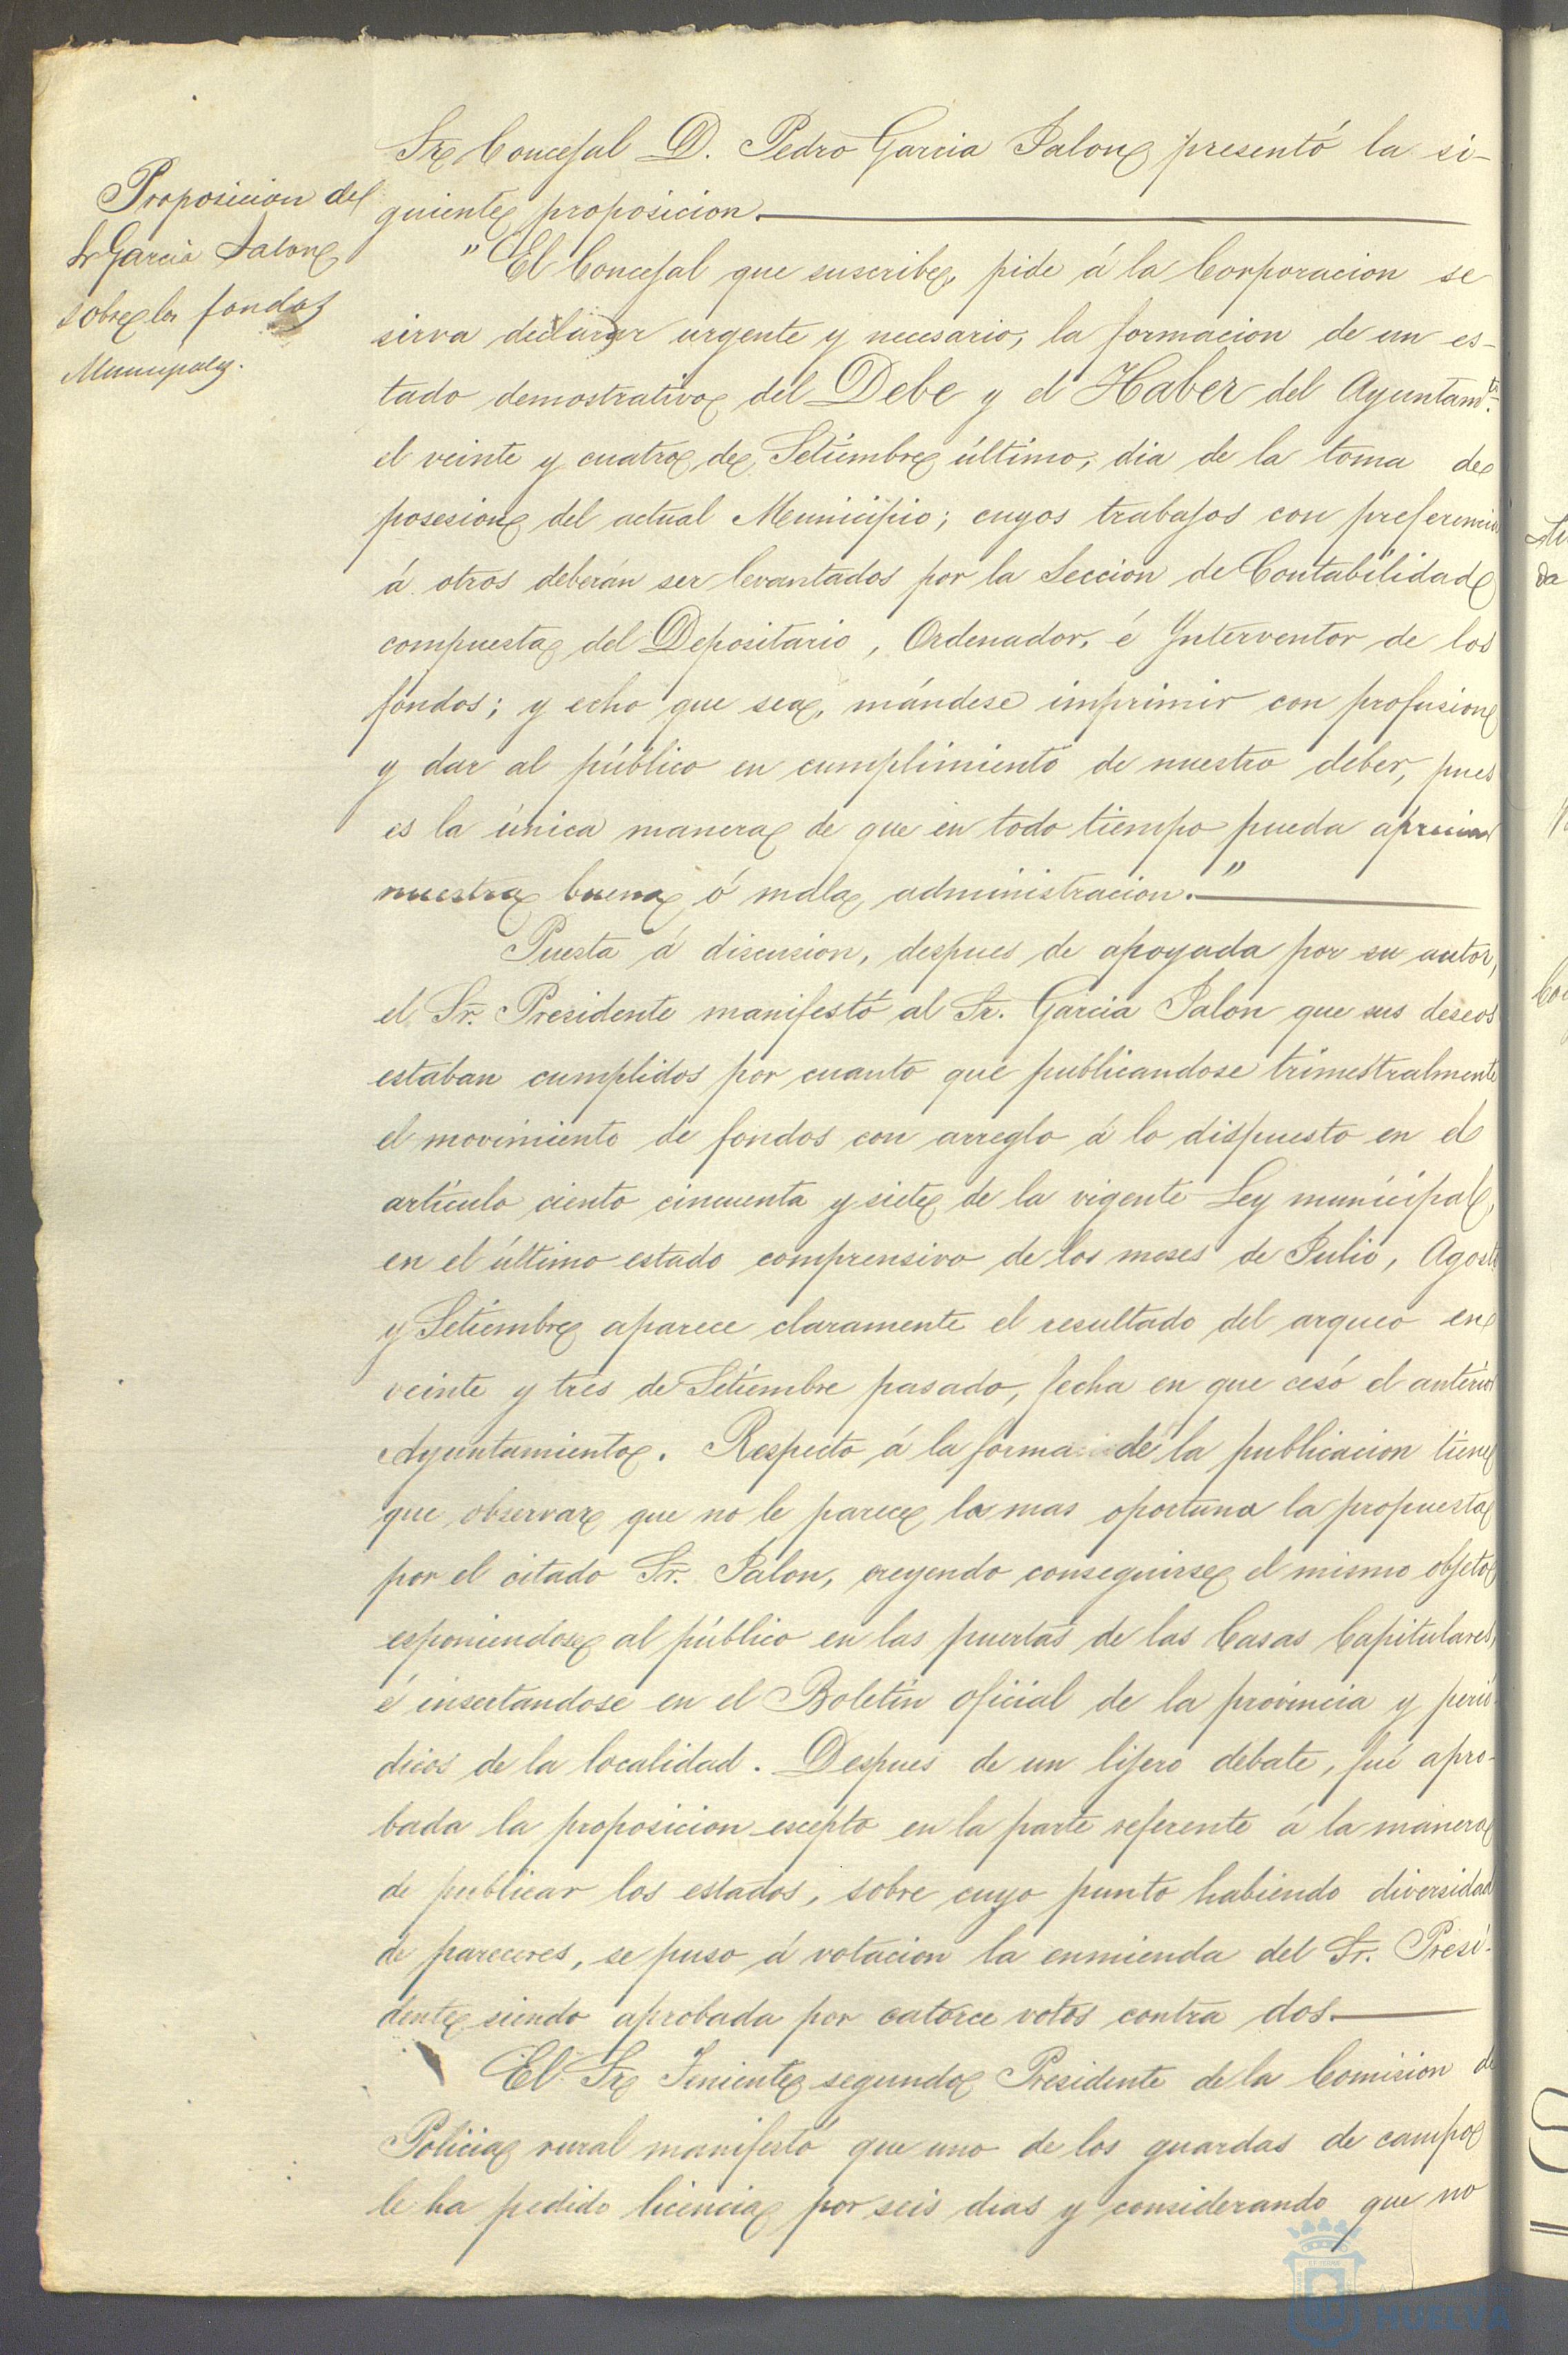 Proposicion del
Sr Garcia Jalon
sobre los fondos
Municipales.
Sr Concejal D. Pedro Garcia Jalon presentó la si-
guiente proposicion.
"El Concejal que suscribe, pide á la Corporacion se
sirva declarar urgente y necesario, la formacion de un es-
tado demostrativo del Debe y el Haber del Ayuntamto.
el veinte y cuatro de Setiembre último, dia de la toma de
posesion del actual Municipio; cuyos trabajos con preferencia
á otros deberán ser levantados por la Seccion de Contabilidad
compuesta del Depositario, Ordenador, é Ynterventor de los
fondos; y echo que sea, mándese imprimir con profusion
y dar al público en cumplimiento de nuestro deber, pues
es la única manera de que en todo tiempo pueda apreciar
nuestra buena ó mala administracion."
Puesta á discusion, despues de apoyada por su autor,
el Sr. Presidente manifestó al Sr. Garcia Jalon que sus deseos
estaban cumplidos por cuanto que publicandose trimestralmente
el movimiento de fondos con arreglo á lo dispuesto en el
artículo ciento cincuenta y siete de la vigente Ley municipal,
en el último estado comprensivo de los meses de Julio, Agosto
y Setiembre aparece claramente el resultado del arqueo en
veinte y tres de Setiembre pasado, fecha en que cesó el anterior
Ayuntamiento. Respecto á la forma de la publicacion tiene
que observar que no le parece la mas oportuna la propuesta
por el citado Sr. Jalon, creyendo conseguirse el mismo objeto
esponiendose al público en las puertas de las Casas Capitulares,
é insertandose en el Boletin oficial de la provincia y perió-
dicos de la localidad. Despues de un lijero debate, fué apro-
bada la proposicion escepto en la parte referente á la manera
de publicar los estados, sobre cuyo punto habiendo diversidad
de pareceres, se puso á votacion la enmienda del Sr. Presi-
dente siendo aprobada por catorce votos contra dos.
El Sr Teniente segundo Presidente de la Comision de
Policia rural manifestó que uno de los guardas de campo
le ha pedido licencia por seis dias y considerando que no
HUELVA